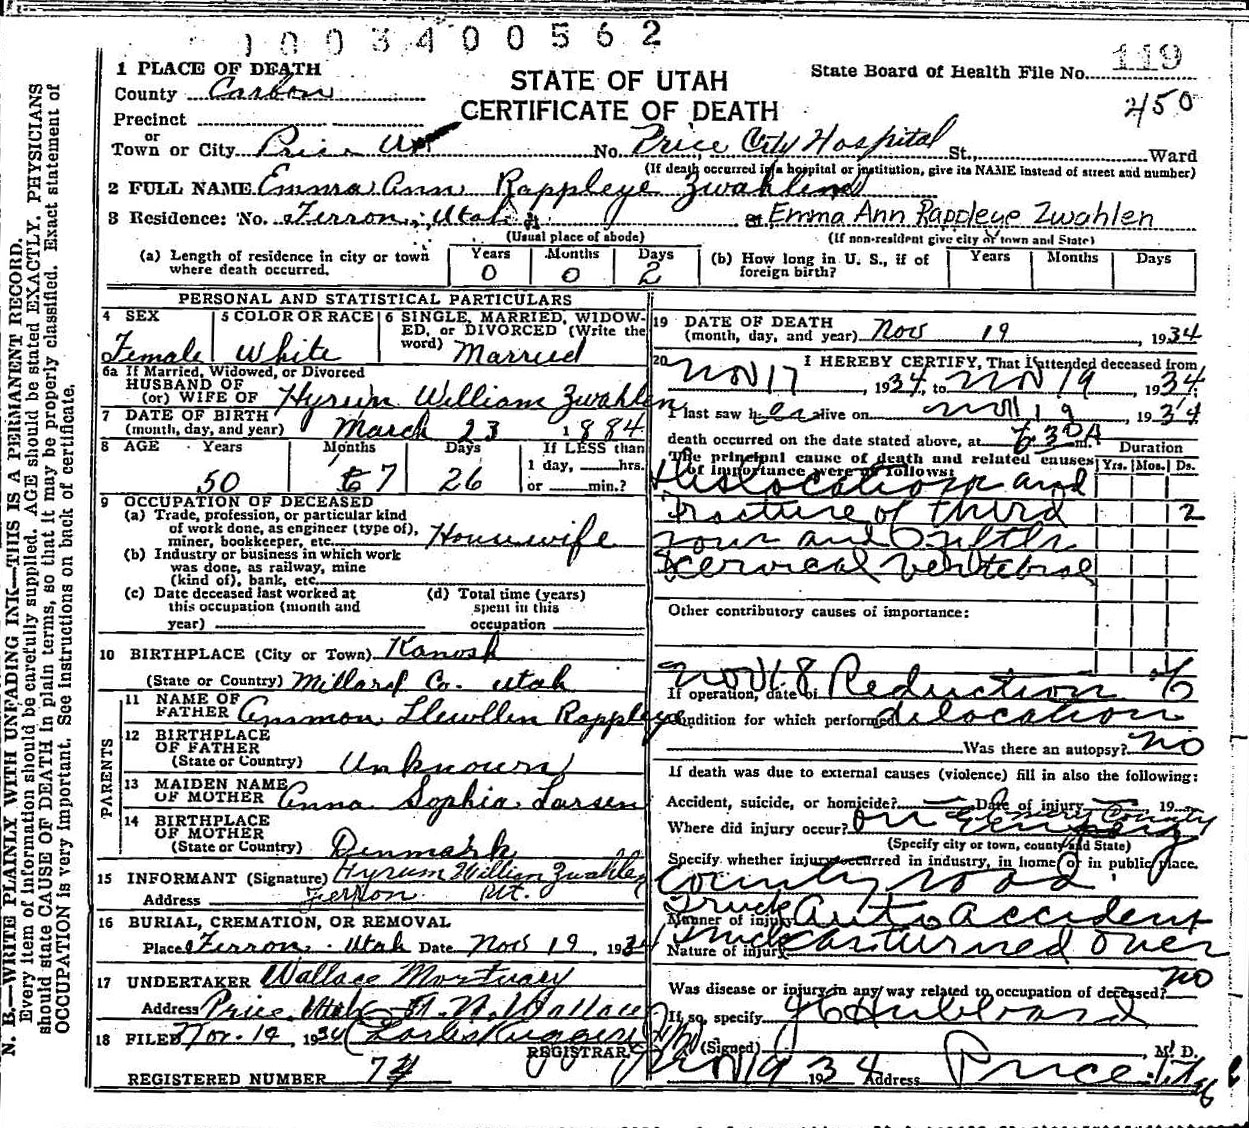 1003400562
119
1 PLACE OF DEATH
STATE OF UTAH
State Board of Health File No.
County Carbon
CERTIFICATE OF DEATH
450
Precinct
or
Town or City Price Ut No. Price City Hospital St., Ward
(If death occurred in a hospital or institution, give its NAME instead of street and number)
2 FULL NAME Emma Ann Rappleye Zwahlend
3 Residence: No. Ferron, Utah St. Emma Ann Rappleye Zwahlen
(Usual place of abode) (If non-resident give city or town and State)
(a) Length of residence in city or town where death occurred. Years 0 Months 0 Days 2
(b) How long in U. S., if of foreign birth? Years Months Days
PERSONAL AND STATISTICAL PARTICULARS
4 SEX Female
5 COLOR OR RACE White
6 SINGLE, MARRIED, WIDOWED, or DIVORCED (Write the word) Married
6a If Married, Widowed, or Divorced
HUSBAND OF
(or) WIFE OF Hyrum William Zwahlen
7 DATE OF BIRTH
(month, day, and year) March 23 1884
8 AGE Years 50 Months 7 Days 26
If LESS than
1 day, hrs.
or min.?
9 OCCUPATION OF DECEASED
(a) Trade, profession, or particular kind
of work done, as engineer (type of),
miner, bookkeeper, etc. Housewife
(b) Industry or business in which work
was done, as railway, mine
(kind of), bank, etc.
(c) Date deceased last worked at
this occupation (month and
year)
(d) Total time (years)
spent in this
occupation
10 BIRTHPLACE (City or Town) Kanosh
(State or Country) Millard Co. Utah
PARENTS
11 NAME OF
FATHER Ammon Llewllen Rappleye
12 BIRTHPLACE
OF FATHER
(State or Country) Unknown
13 MAIDEN NAME
OF MOTHER Anna Sophia Larsen
14 BIRTHPLACE
OF MOTHER
(State or Country) Denmark
15 INFORMANT (Signature) Hyrum William Zwahlen
Address Ferron Ut.
16 BURIAL, CREMATION, OR REMOVAL
Place Ferron, Utah Date Nov 19, 1934
17 UNDERTAKER Wallace Mortuary
Address Price, Utah A. N. Wallace
18 FILED Nov. 19, 1934
REGISTRAR
REGISTERED NUMBER 74
19 DATE OF DEATH
(month, day, and year) Nov 19, 1934
20 I HEREBY CERTIFY, That I attended deceased from
Nov 17, 1934, to Nov 19 1934.
I last saw her alive on Nov 19, 1934
death occurred on the date stated above, at 630A m.
The principal cause of death and related causes
of importance were as follows:
Duration
Yrs. Mos. Ds.
Dislocation and
Fracture of third 2
four and fifth
cervical vertebrae
Other contributory causes of importance:
If operation, date of Nov 18 Reduction of
Condition for which performed dilocation
Was there an autopsy? no
If death was due to external causes (violence) fill in also the following:
Accident, suicide, or homicide? Date of injury 19
Where did injury occur? on Emery County
(Specify city or town, county and State)
Specify whether injury occurred in industry, in home, or in public place.
County road
Manner of injury Truck Auto Accident
Nature of injury Truck car turned over
Was disease or injury in any way related to occupation of deceased? no
If so, specify
(Signed) J C Hubbard, M. D.
Nov 19 1934 Address Price Utah
N. B.—WRITE PLAINLY WITH UNFADING INK—THIS IS A PERMANENT RECORD.
Every item of information should be carefully supplied. AGE should be stated EXACTLY. PHYSICIANS
should state CAUSE OF DEATH in plain terms, so that it may be properly classified. Exact statement of
OCCUPATION is very important. See instructions on back of certificate.